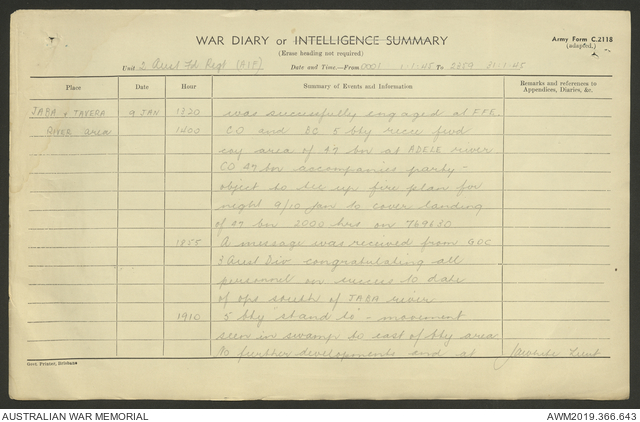 WAR DIARY or INTELLIGENCE SUMMARY
Army Form C.2118
(adapted.)
(Erase heading not required)
Unit 2 Aust Fd Regt (AIF) Date and Time.—From 0001 1.1.45 To 2359 31.1.45
Place Date Hour Summary of Events and Information Remarks and references to Appendices, Diaries, &c.
JABA & TAVERA 9 JAN 1320 was successfully engaged at F.F.E.
RIVER area 1400 CO and BC 5 bty recce fwd
coy area of 47 bn at ADELE river
CO 47 bn accompanies party -
object to tie up fire plan for
night 9/10 Jan to cover landing
of 47 bn 2000 hrs on 769630
1855 A message was received from GOC
3 Aust Div congratulating all
personnel on success to date
of ops south of JABA river
1910 5 bty "stand to" - movement
seen in swamp to east of bty area
No further developments and at Lieut
Govt. Printer, Brisbane
AUSTRALIAN WAR MEMORIAL
AWM2019.366.643